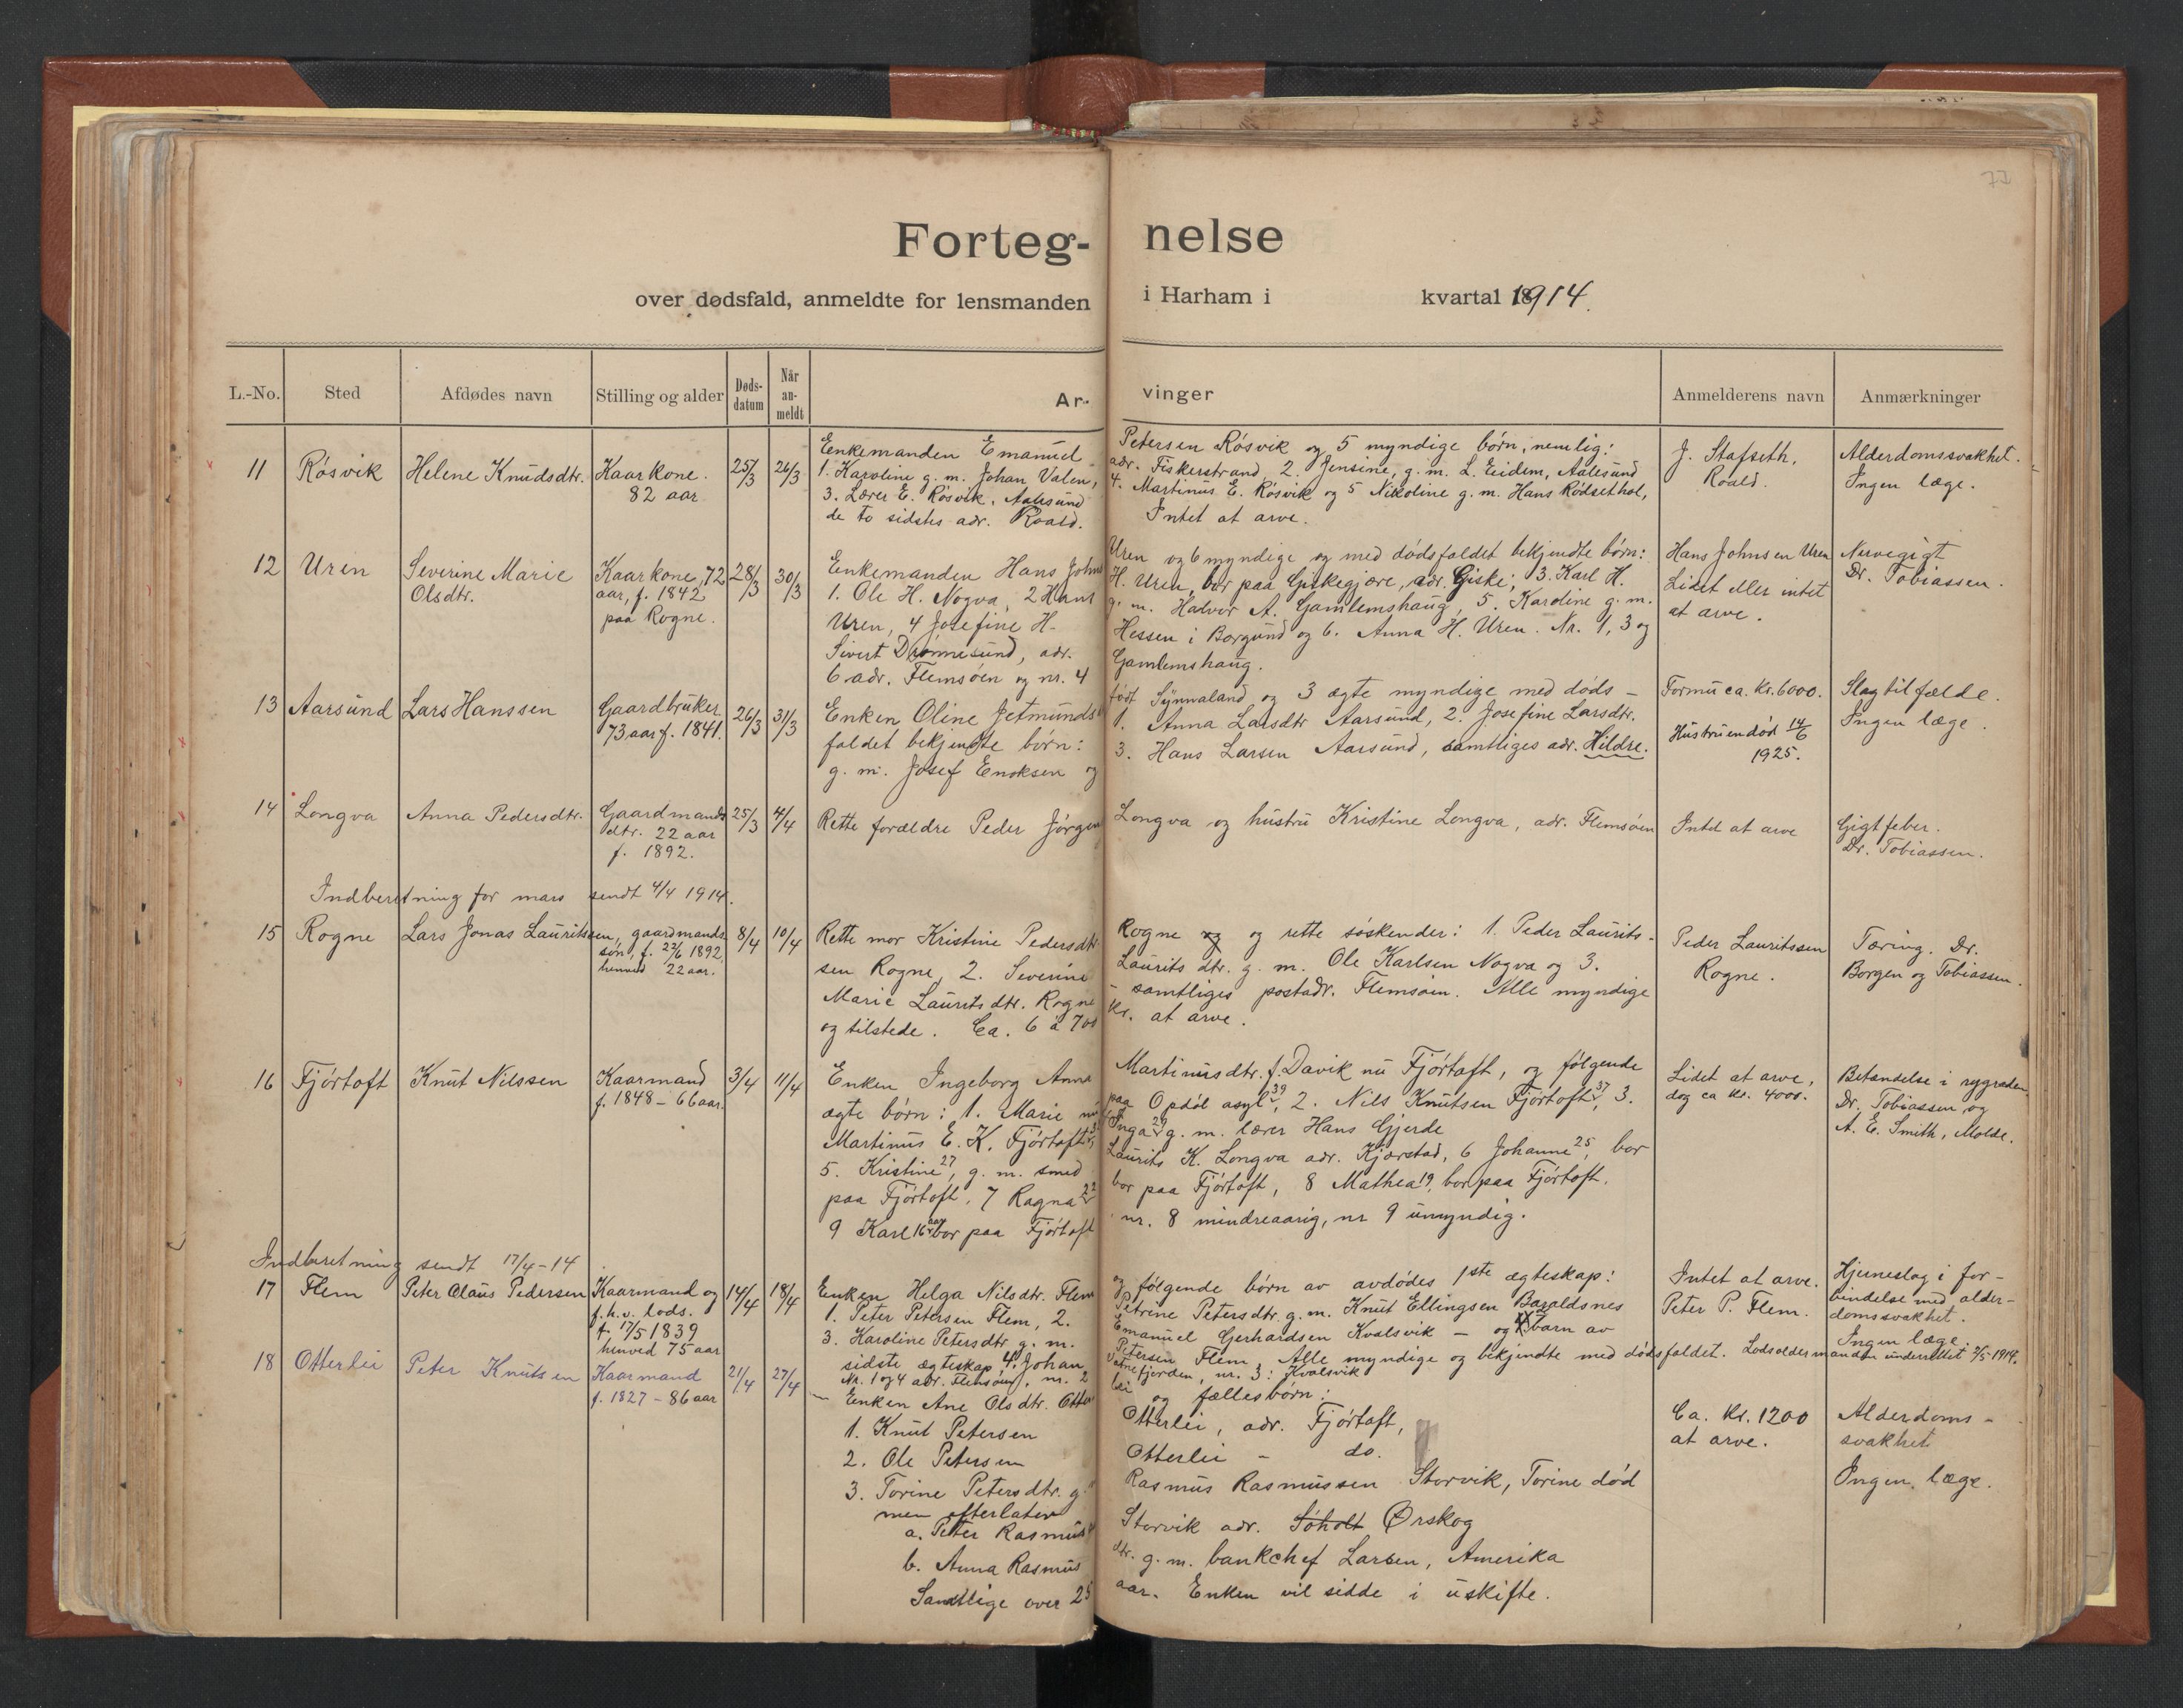 72
Forteg- nelse
over dødsfald, anmeldte for lensmanden i Harham i kvartal 1914.
L.-No. Sted Afdødes navn Stilling og alder Døds-datum Når an-meldt Ar- vinger Anmelderens navn Anmærkninger
11 Rösvik Helene Knudsdtr. Kaarkone. 82 aar 25/3 26/3
Enkemanden Emanuel Petersen Rösvik og 5 myndige börn, nemlig:
1. Karoline g. m. Johan Valen, adr. Fiskerstrand, 2. Jensine, g. m. L. Eidem, Aalesund
3. Lærer E. Rösvik, Aalesund 4. Martinus E. Rösvik og 5 Nikoline g. m. Hans Rödsethol,
de to sidstes adr. Roald. Intet at arve.
J. Stafseth, Roald.
Alderdomssvakhet.
Ingen læge.
12 Uren Severine Marie Olsdtr. Kaarkone, 72 aar, f. 1842 paa Rogne. 28/3 30/3
Enkemanden Hans Johns Uren og 6 myndige og med dödsfaldet bekjendte börn:
1. Ole H. Nogva, 2 Hans H. Uren, bor paa Giskegjære, adr. Giske; 3. Karl H.
Uren, 4 Josefine H. g. m. Halvor A. Gamlemshaug, 5. Karoline g. m.
Sivert Drönnesund, adr. Hessen i Borgund og 6. Anna H. Uren. Nr. 1, 3 og
6 adr. Flemsöen og nr. 4 Gamlemshaug.
Hans Johnsen Uren
Lidet eller intet
at arve.
Nervegigt
Dr. Tobiassen.
13 Aarsund Lars Hanssen Gaardbruker 73 aar f. 1841. 26/3 31/3
Enken Oline Jetmunds födt Synnaland og 3 ægte myndige med döds-
faldet bekjendte börn: 1. Anna Larsdtr Aarsund, 2. Josefine Larsdtr.
g. m. Josef Enoksen og 3. Hans Larsen Aarsund, samtliges adr. Hildre.
Formu ca. kr. 6000.
Hustruen död 14/6
1925.
Slagtilfælde.
Ingen læge.
14 Longva Anna Pedersdtr. Gaardmands dtr. 22 aar f. 1892. 25/3 4/4
Rette forældre Peder Jörgen Longva og hustru Kristine Longva, adr. Flemsöen
Intet at arve
Gigtfeber.
Dr. Tobiassen.
Indberetning for mars sendt 4/4 1914.
15 Rogne Lars Jonas Lauritssen, gaardmands sön, f. 22/6 1892, henved 22 aar. 8/4 10/4
Rette mor Kristine Pedersdtr. Rogne og og rette söskender: 1. Peder Laurits-
sen Rogne, 2. Severine Laurits dtr. g. m. Ole Karlsen Nogva og 3.
Marie Lauritsdtr. Rogne - samtliges postadr. Flemsöen. Alle myndige
og tilstede. Ca. 6 a 700 kr. at arve.
Peder Lauritssen
Rogne.
Tæring. Dr.
Borgen og Tobiassen.
16 Fjörtoft Knut Nilssen Kaarmand f. 1848 - 66 aar. 3/4 11/4
Enken Ingeborg Anne Martinusdtr. f. Davik nu Fjörtoft, og fölgende
ægte börn: 1. Marie nu paa Opdöl asyl 39, 2. Nils Knutsen Fjörtoft 37, 3.
Martinus E. K. Fjörtoft, Inga 29 g. m. lærer Hans Gjerde
5. Kristine 27, g. m. smed Laurits K. Longva adr. Kjærstad, 6 Johanne 25, bor
paa Fjörtoft, 7 Ragna 22 bor paa Fjörtoft, 8 Mathea 19, bor paa Fjörtoft.
9 Karl 16 aar bor paa Fjörtoft nr. 8 mindreaarig, nr 9 umyndig.
Lidet at arve,
dog ca kr. 4000.
Betændelse i rygraden
Dr. Tobiassen og
A. E. Smith, Molde.
Indberetning sendt 17/4-14.
17 Flem Peter Olaus Pedersen Kaarmand og f. h. v. lods. f. 17/5 1839 henved 75 aar 14/4 18/4
Enken Helga Nilsdtr. Flem og fölgende börn av avdödes 1ste ægteskap:
1. Peter Petersen Flem, 2. Petrine Petersdtr. g. m. Knut Ellingsen Baraldsnes
3. Karoline Petersdtr g. m. Emanuel Gerhardsen Kvalsvik - og barn av
sidste ægteskap 4. Johan Petersen Flem, Alle myndige og bekjendte med dödsfaldet. Lodsoldermanden underrettet 2/5 1914.
Nr. 1 og 4 adr. Flemsöen, nr. 2 Vatnefjorden, nr. 3: Kvalsvik
Intet at arve.
Peter P. Flem.
Hjerneslag i for-
bindelse med alder-
domssvakhet.
Ingen læge.
18 Otterlei Peter Knutsen Kaarmand f. 1827 - 86 aar 21/4 27/4
Enken Ane Olsdtr. Otterlei og fællesbörn:
1. Knut Petersen Otterlei, adr. Fjörtoft,
2. Ole Petersen Otterlei - do.
3. Torine Petersdtr. g. m Rasmus Rasmussen Storvik, Torine död
men efterlater
a. Peter Rasmus Storvik adr. Söholt Ørskog
b. Anna Rasmus dtr. g. m. bankchef Larsen, Amerika
Samtlige over 25 aar. Enken vil sidde i uskifte.
Ca. kr. 1200
at arve.
Alderdoms-
svakhet
Ingen læge.